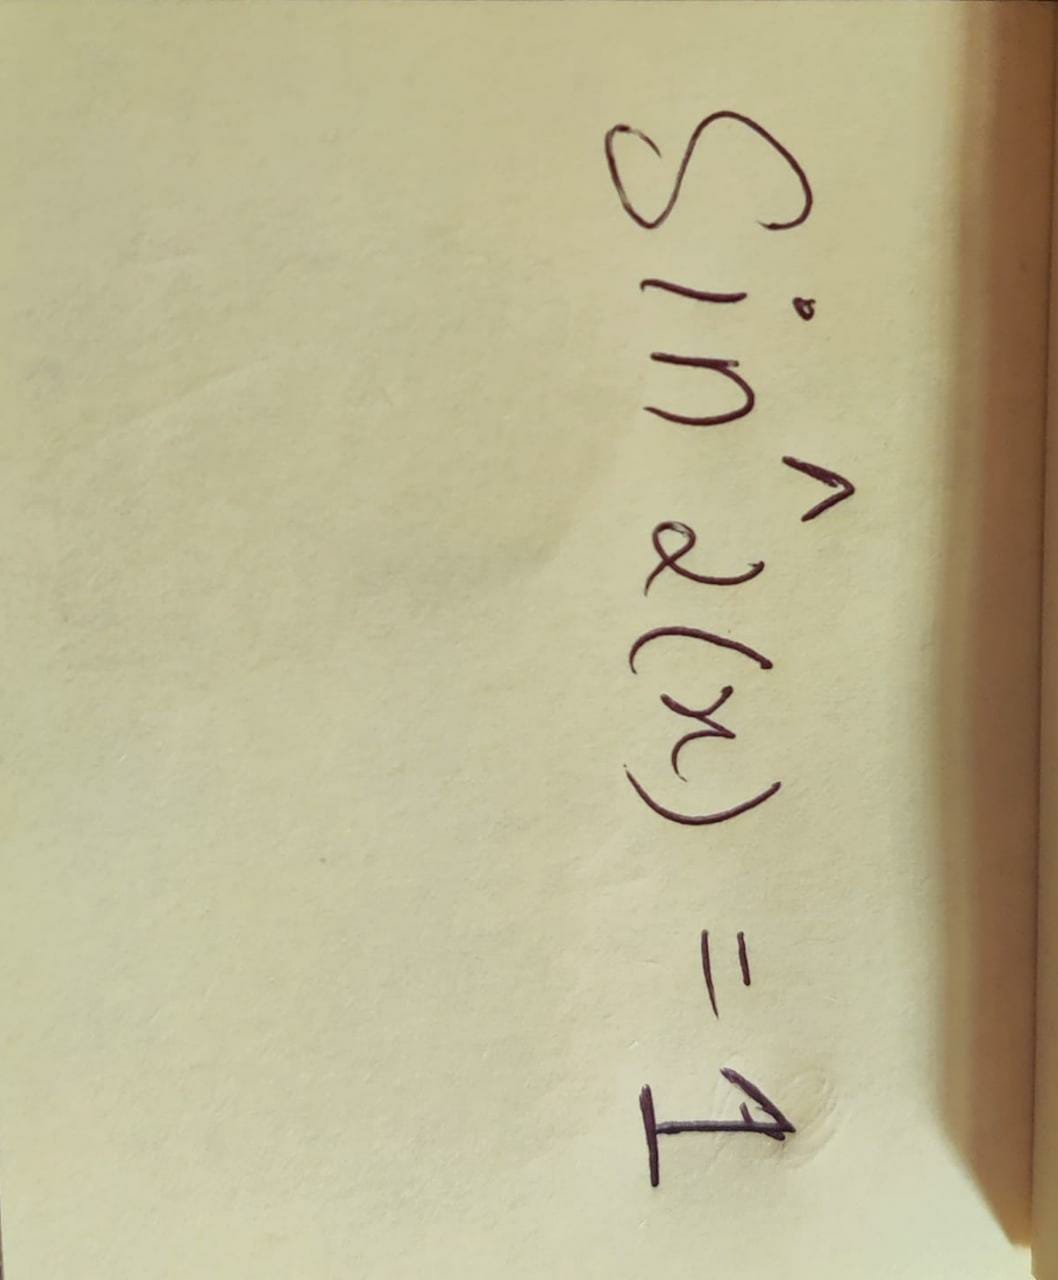 Sin^2(x) = 1